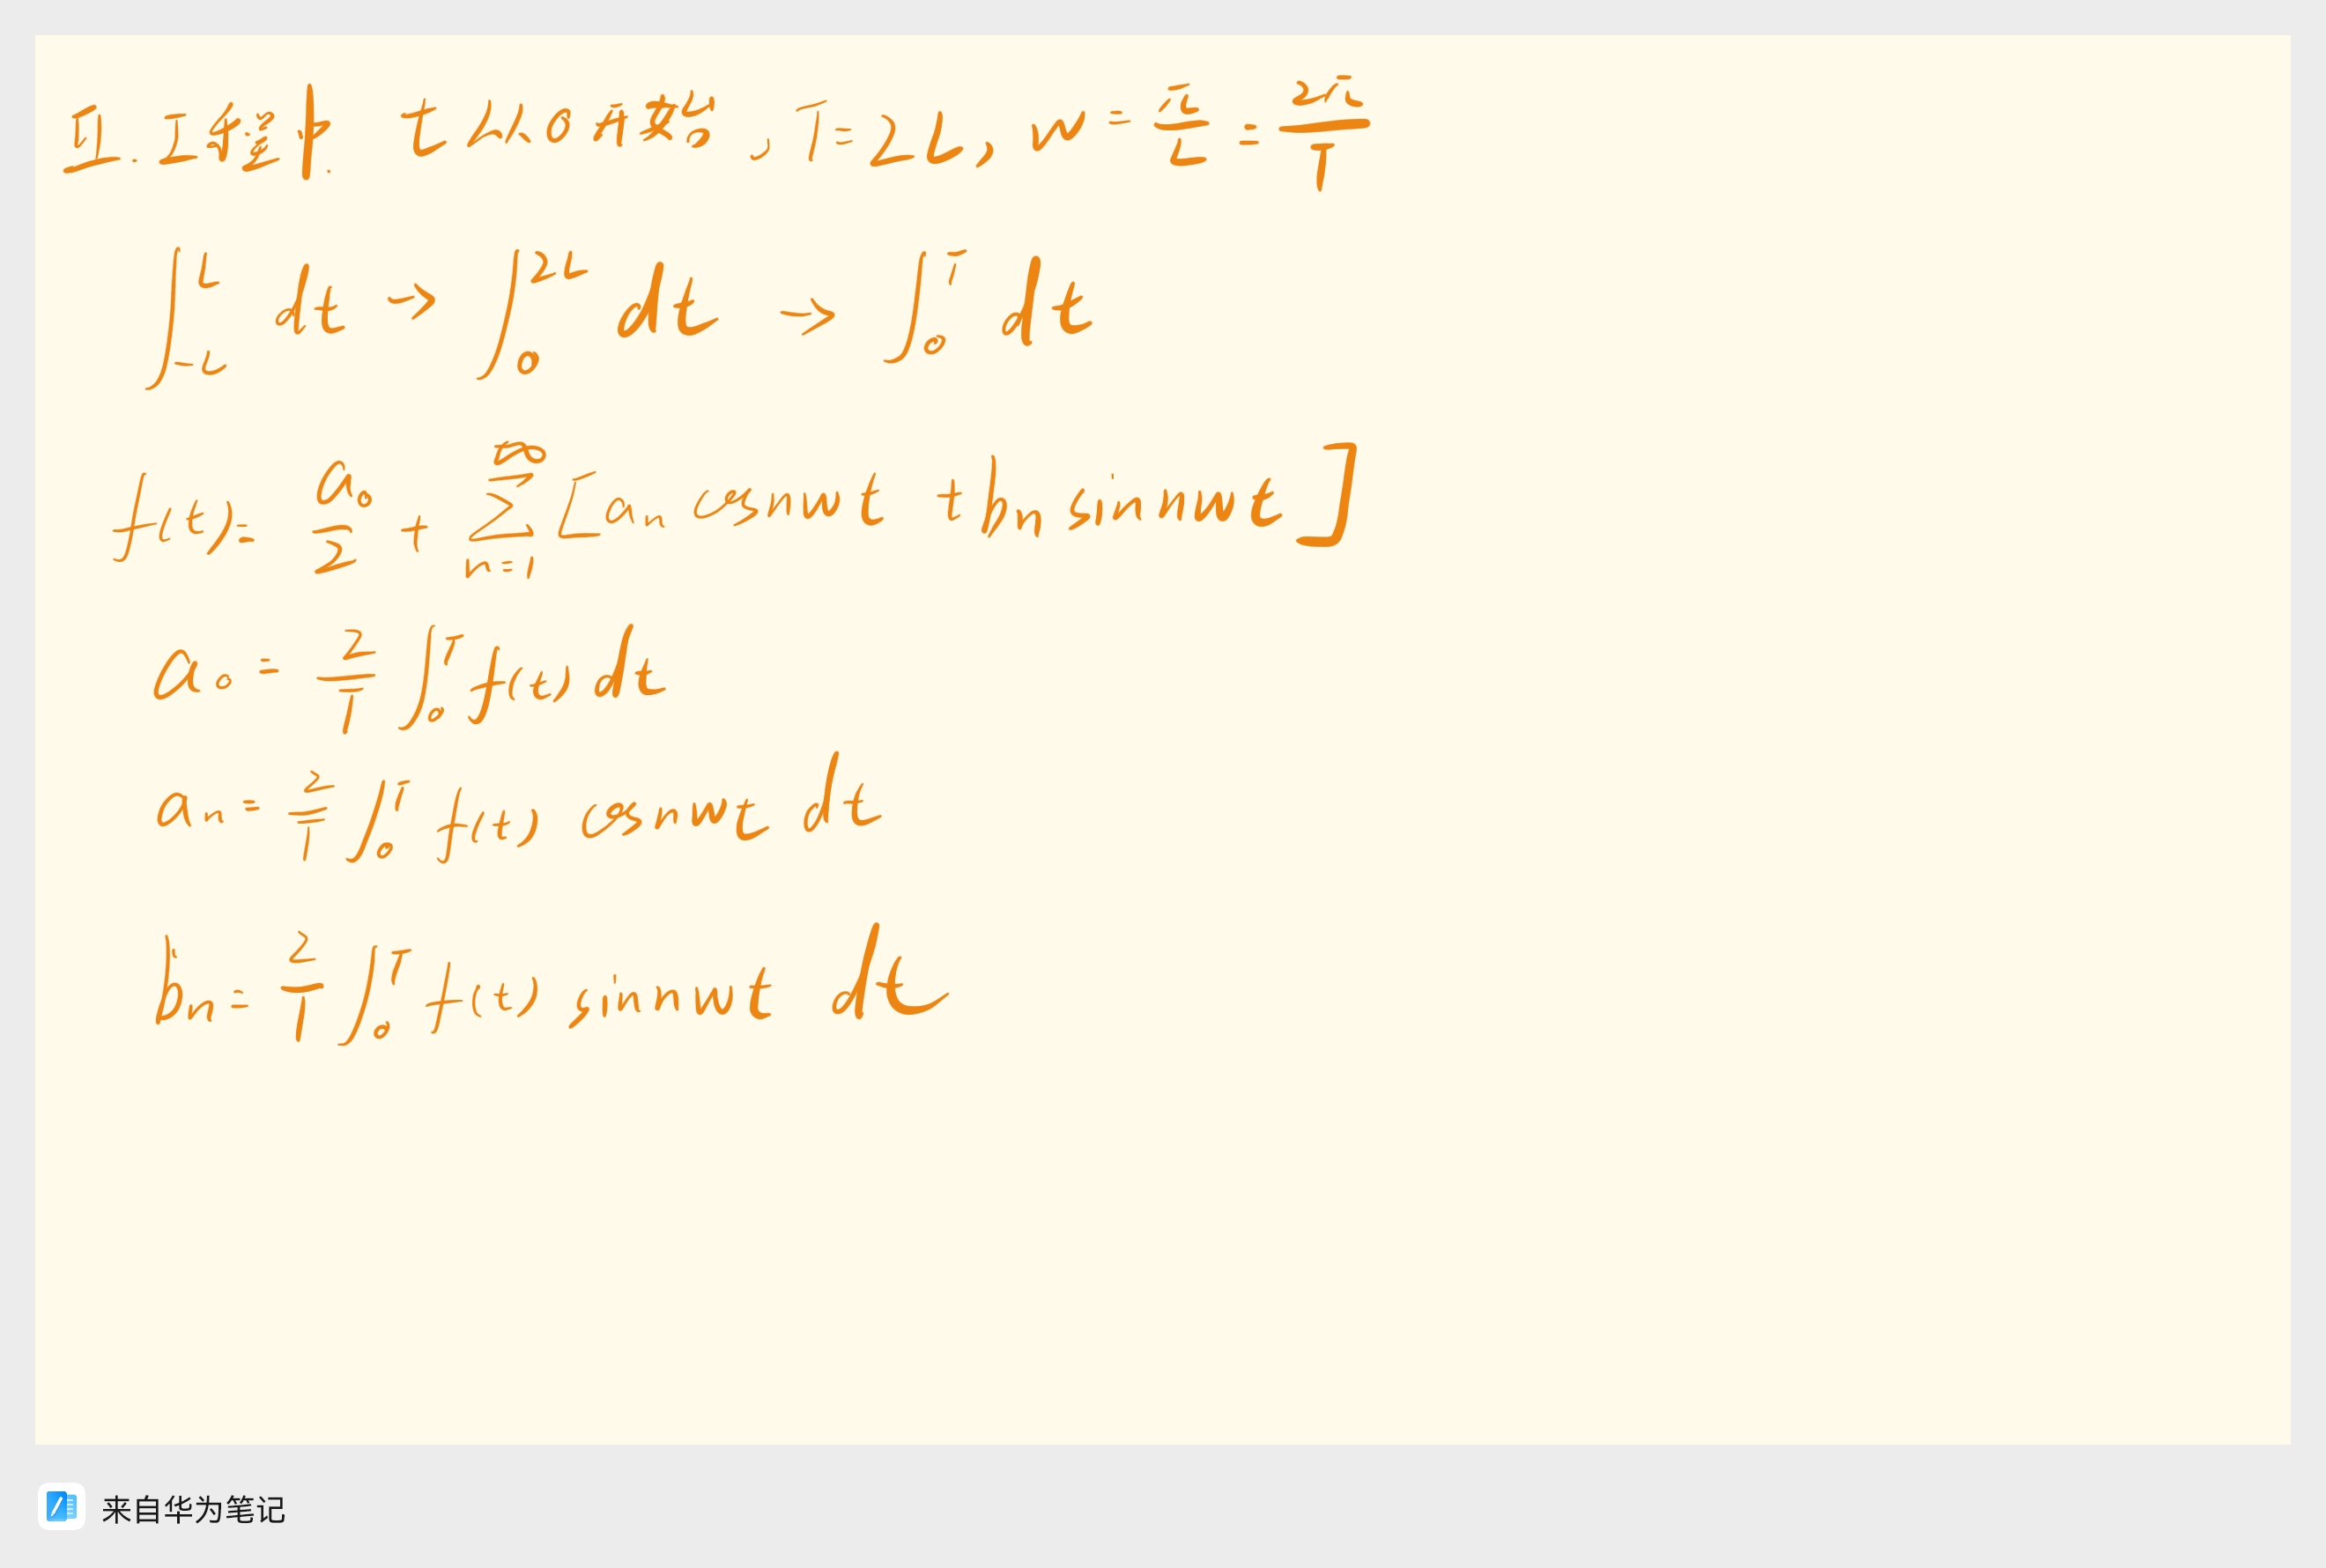 五.工程中. t从0开始, T=2L, w=π/L=2π/T
∫_{-L}^{L} dt → ∫_0^{2L} dt → ∫_0^T dt
f(t)= a₀/2 + ∑_{n=1}^{∞} [aₙ cosnwt + bₙ sinnwt]
a₀ = 2/T ∫_0^T f(t) dt
aₙ = 2/T ∫_0^T f(t) cosnwt dt
bₙ = 2/T ∫_0^T f(t) sinnwt dt
来自华为笔记